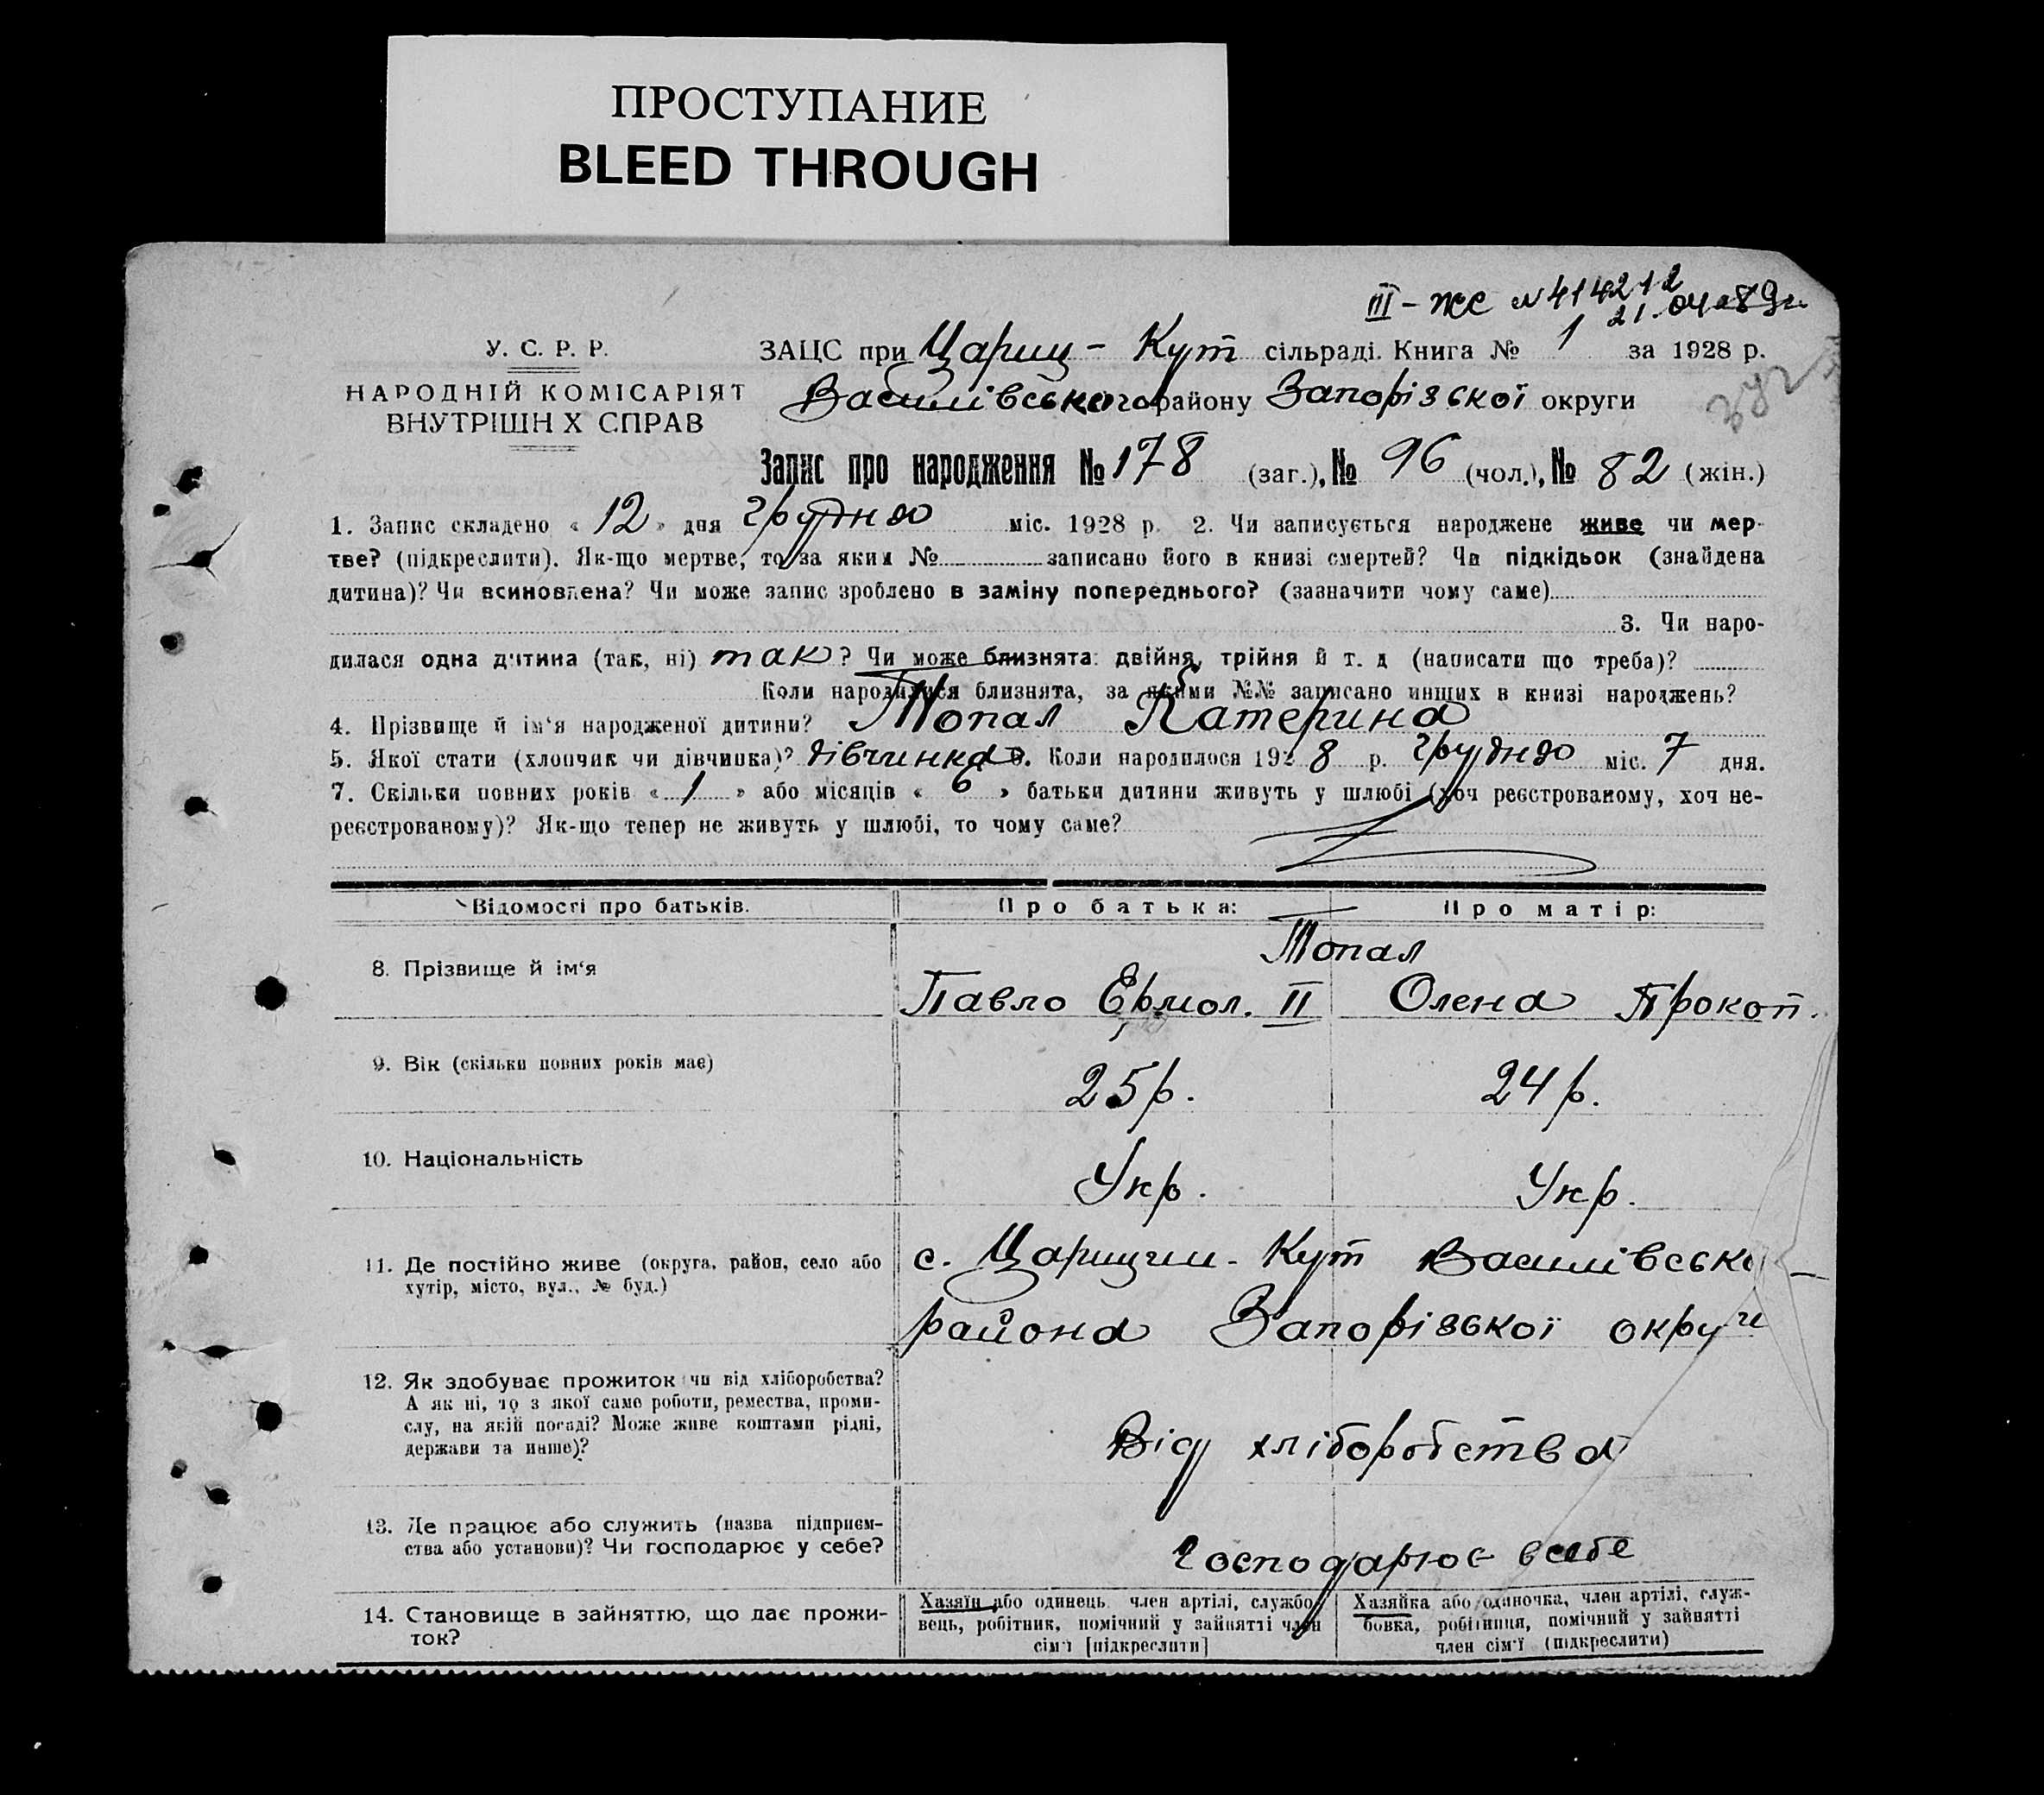 ПРОСТУПАНИЕ
BLEED THROUGH
III - ЖС №414212
21.04.89г.
У. С. Р. Р.
НАРОДНІЙ КОМІСАРІЯТ
ВНУТРІШН Х СПРАВ
ЗАЦС при Цариц - Кут сільраді. Книга № 1 за 1928 р.
Василівського району Запорізської округи
Запис про народження № 178 (заг.), № 96 (чол.), № 82 (жін.)
1. Запис складено « 12 » дня грудню міс. 1928 р. 2. Чи записується народжене живе чи мер-
тве? (підкреслити). Як-що мертве, то за яким № записано його в книзі смертей? Чи підкідьок (знайдена
дитина)? Чи всиновлена? Чи може запис зроблено в заміну попереднього? (зазначити чому саме)
3. Чи наро-
дилася одна дитина (так, ні) так? Чи може близнята: двійня, трійня й т. д (написати що треба)?
Коли народилися близнята, за якими №№ записано инших в книзі народжень?
4. Прізвище й ім'я народженої дитини? Топал Катерина
5. Якої стати (хлопчик чи дівчинка)? дівчинка 6. Коли народилося 1928 р. грудню міс. 7 дня.
7. Скільки повних років « 1 » або місяців « 6 » батьки дитини живуть у шлюбі (хоч реєстрованому, хоч не-
реєстрованому)? Як-що тепер не живуть у шлюбі, то чому саме?
Відомості про батьків. Про батька: Про матір:
Топал
8. Прізвище й ім'я Павло Ермол. II Олена Прокоп.
9. Вік (скільки повних років має) 25 р. 24 р.
10. Національність Укр. Укр.
11. Де постійно живе (округа, район, село або
хутір, місто, вул., № буд.)
с. Царицин - Кут Василівсько -
района Запорізької округи
12. Як здобуває прожиток чи від хліборобства?
А як ні, то з якої саме роботи, ремества, проми-
слу, на якій посаді? Може живе коштами рідні,
держави та инше)?
Від хліборобства
13. Де працює або служить (назва підприєм-
ства або установи)? Чи господарює у себе?
Господарює в себе
14. Становище в зайняттю, що дає прожи-
ток?
Хазяїн або одинець член артілі, службо-
вець, робітник, помічний у зайнятті член
сім'ї [підкреслити]
Хазяйка або одиночка, член артілі, служ-
бовка, робітниця, помічний у зайнятті
член сім'ї (підкреслити)